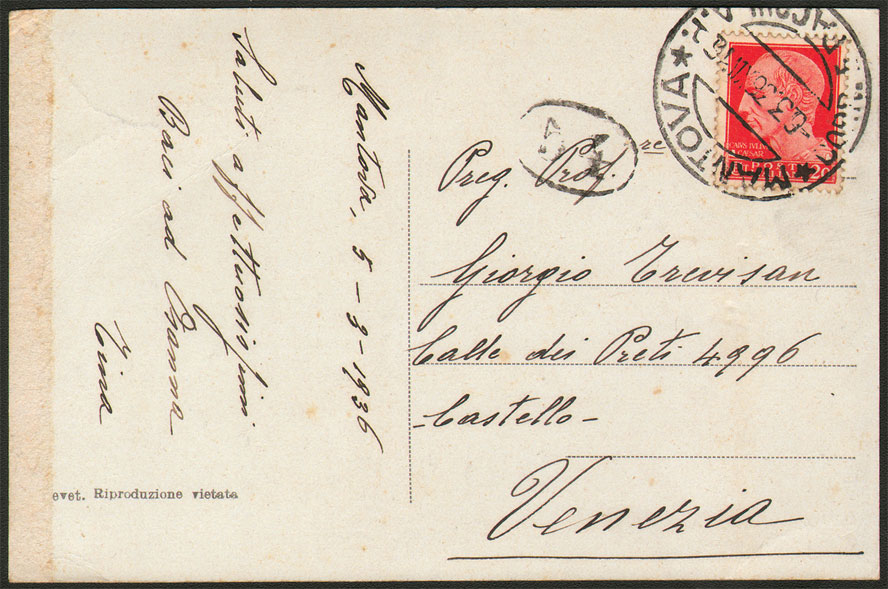 Mantova, 5-3-1936
Saluti affettuosissimi
Baci ad Oranna
Zina
evet. Riproduzione vietata
Preg. Prof.re
Giorgio Trevisan
Calle dei Preti 4996
-Castello-
Venezia
* MANTOVA *
POST